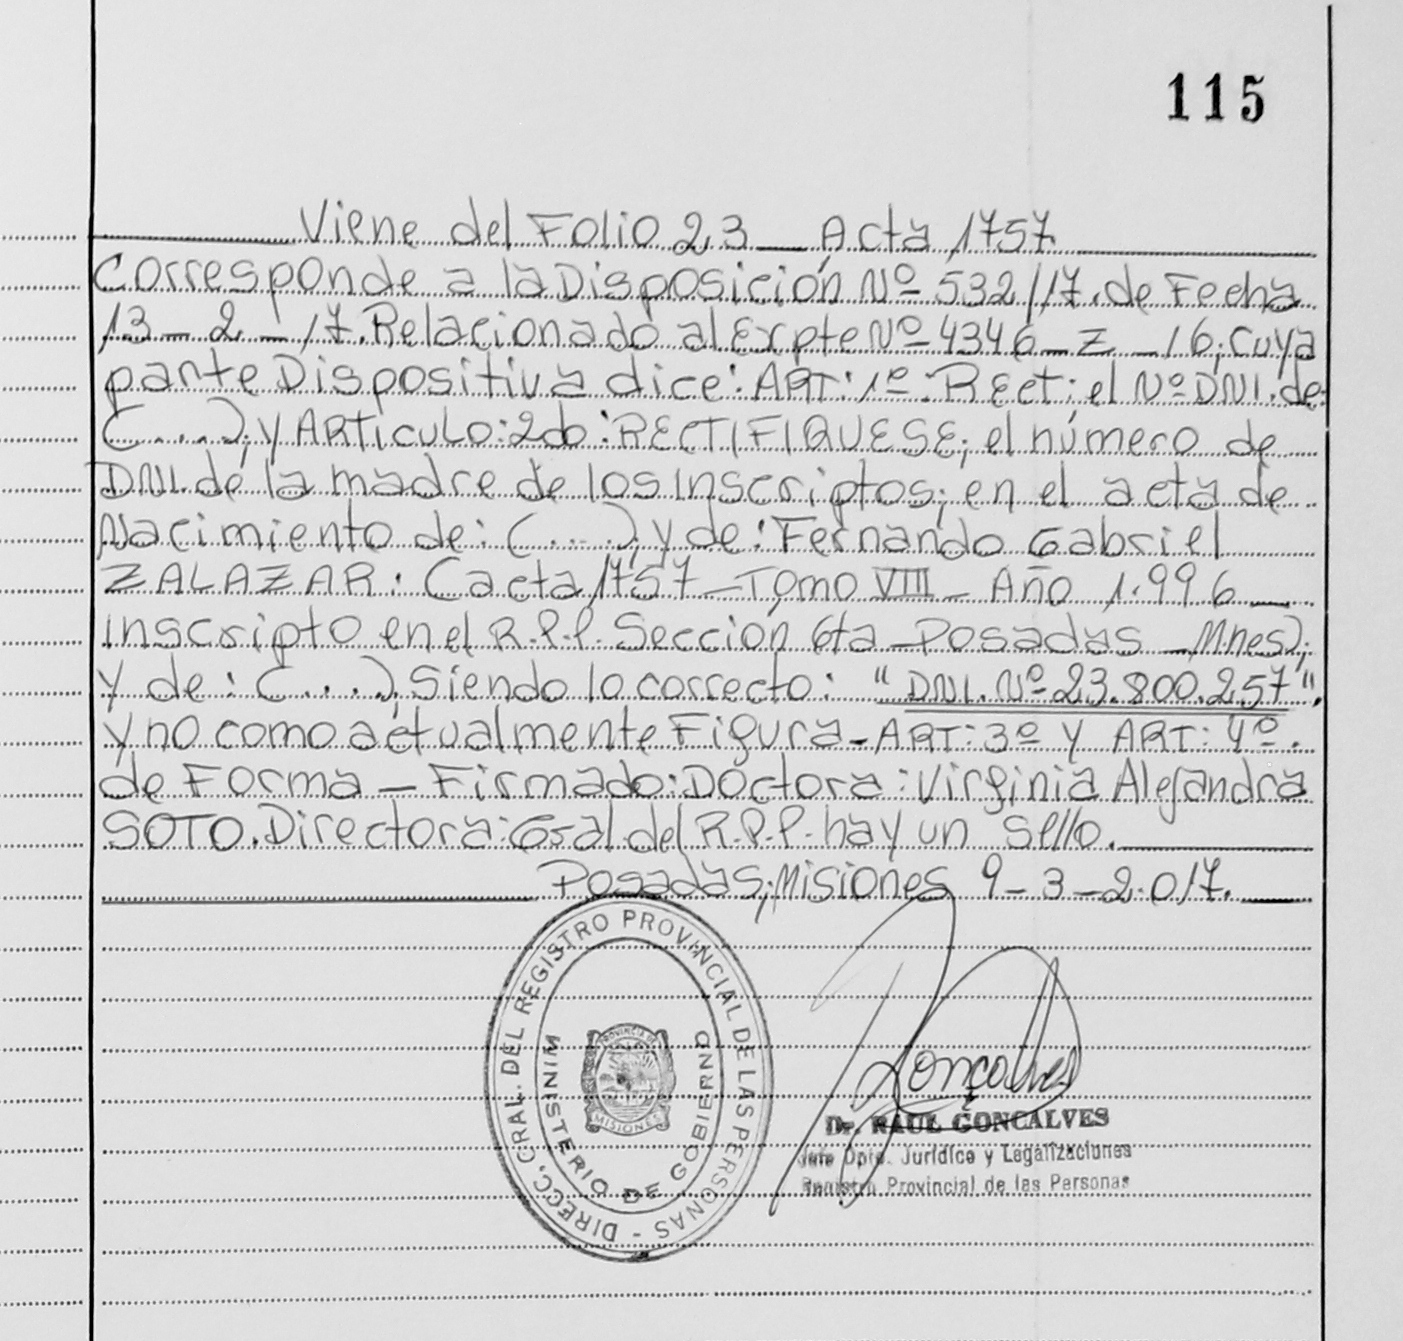 115
Viene del Folio 23 — Acta 1757
Corresponde a la Disposición Nº 532/17. de Fecha
13-2-17. Relacionado al Expte Nº 4346-Z-16; cuya
parte Dispositiva dice: ART: 1º: REct; el Nº DNI. de:
(....), y ARTICULO: 2do: RECTIFIQUESE; el número de
DNI. de la madre de los Inscriptos; en el acta de
Nacimiento de: (....), y de: Fernando Gabriel
ZALAZAR: (acta 1757 - Tomo VIII - Año 1.996
Inscripto en el R.P.P. Sección 6ta - Posadas - Mnes);
y de: (....), Siendo lo correcto: "DNI. Nº 23.800.257",
y no como actualmente Figura - ART: 3º y ART: 4º.
de Forma - Firmado: Doctora: Virginia Alejandra
SOTO. Directora: Gral. del R.P.P. hay un Sello.
Posadas; Misiones 9-3-2.017.
DIRECC. GRAL. DEL REGISTRO PROVINCIAL DE LAS PERSONAS -
MINISTERIO DE GOBIERNO
PROVINCIA DE
MISIONES
Goncalves
Dr. RAUL GONCALVES
Jefe Dpto. Jurídico y Legalizaciones
Registro Provincial de las Personas